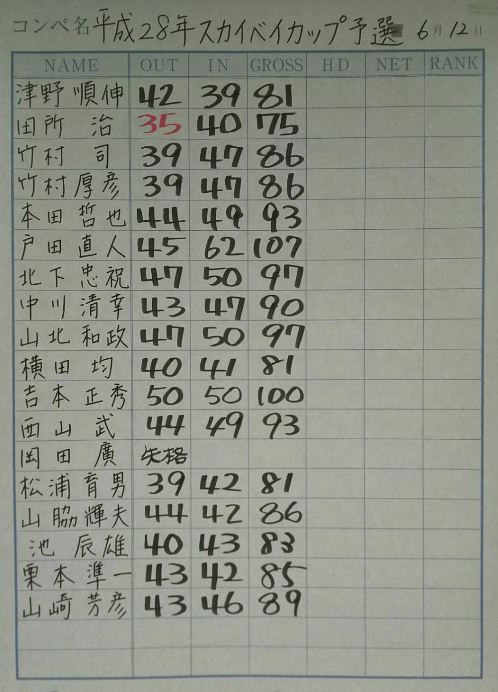 コンペ名 平成28年スカイベイカップ予選 6月12日
NAME OUT IN GROSS HD NET RANK
津野順伸 42 39 81
田所治 35 40 75
竹村司 39 47 86
竹村厚彦 39 47 86
本田哲也 44 49 93
戸田直人 45 62 107
北下忠祝 47 50 97
中川清幸 43 47 90
山北和政 47 50 97
横田均 40 41 81
吉本正秀 50 50 100
西山武 44 49 93
岡田廣 失格
松浦育男 39 42 81
山脇輝夫 44 42 86
池辰雄 40 43 83
栗本準一 43 42 85
山崎芳彦 43 46 89